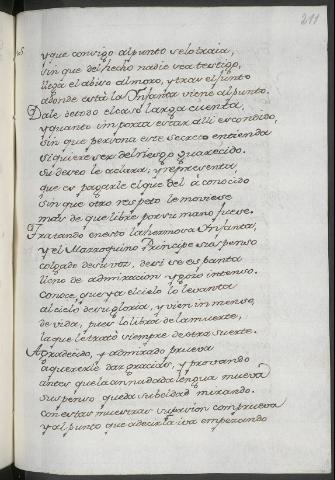 211
y que consigo al punto se lo traia,
sin que del hecho nadie sea testigo,
llega el aviso al moro, y tras el punto
adonde està la Infanta viene al punto.
Dale de todo el caso larga cuenta,
y quanto importa estar alli escondido,
sin que persona este secreto entienda
si quiere ser del riesgo guarecido.
su deseo le aclara, y representa
que es pagarle el que del à conocido
sin que otro respeto le moviese
mas de que libre por su mano fuese.
Tratando en esto la hermosa Infanta,
y el Marroquino Principe suspenso
colgado de su voz, de si se espanta
lleno de admiracion y gozo intenso.
conoce que ya el cielo lo levanta
al cielo de su gloria, y bien inmenso,
de vida, pues lo libra de la muerte,
la que le tratò siempre de otra suerte.
Agradecido, y admirado prueva
a quererle dar gracias, y provando
antes que la añudada lengua mueva
suspenso queda su beldad mirando.
con estas muestras su pasion comprueva
y al punto que a decirla iva empezando